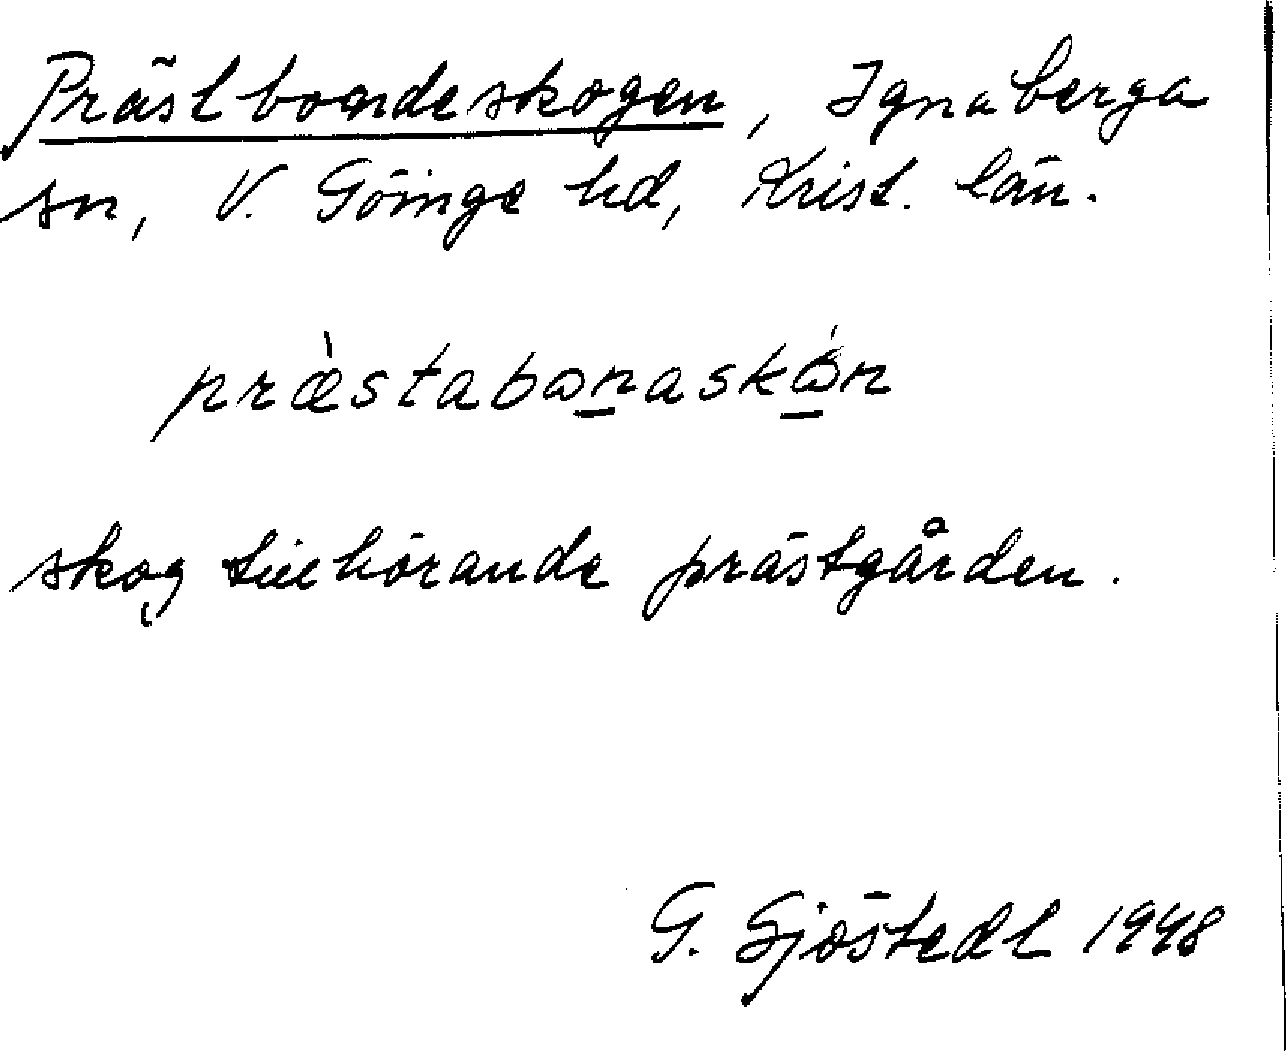 Prästbondeskogen, Ignaberga
sn, V. Göinge hd, Krist. län.
præ̀stabωnaskω̂́n
skog tillhörande prästgården.
G. Sjöstedt 1948